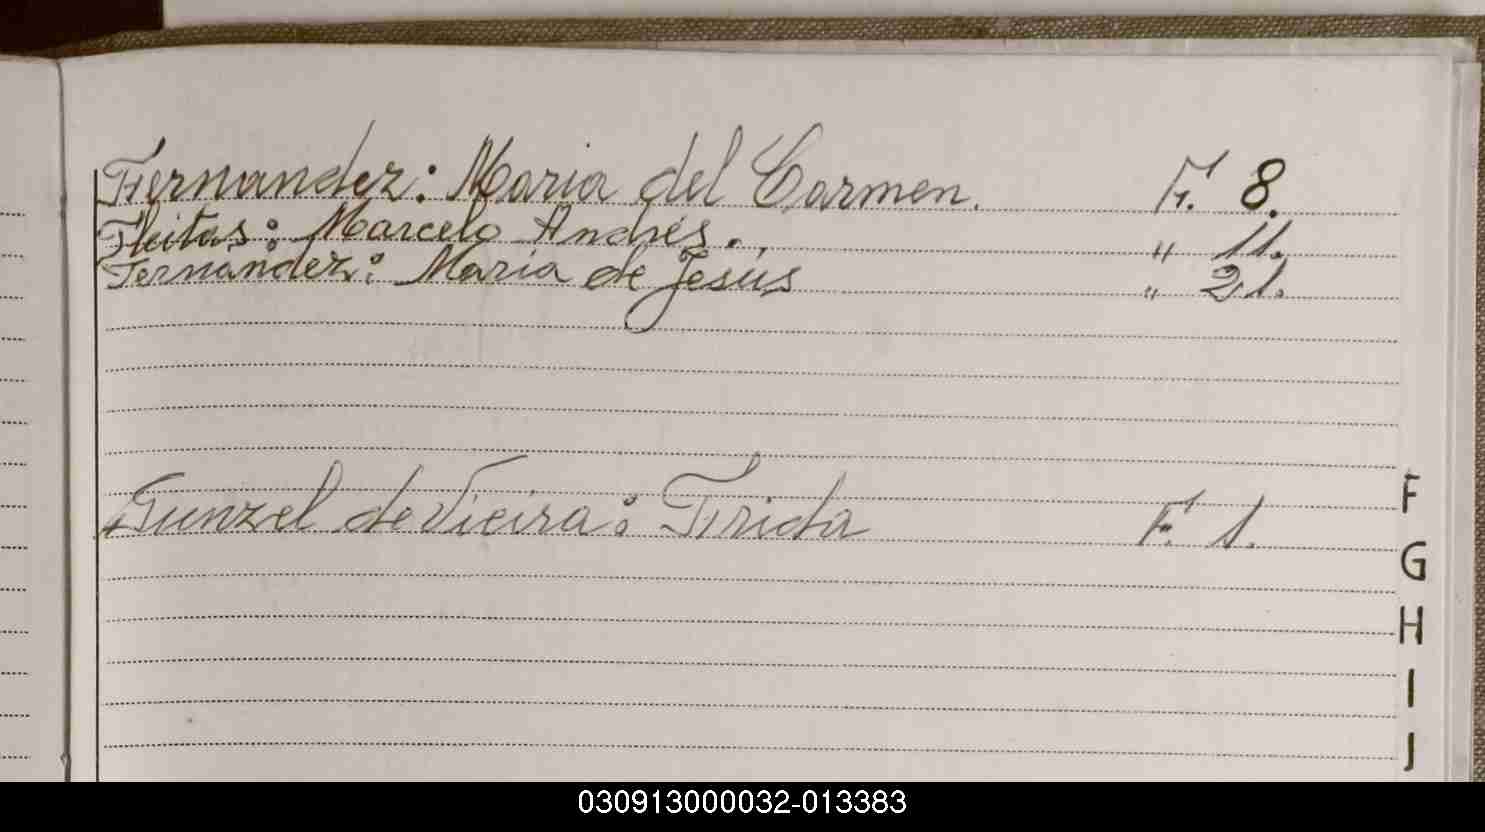 Fernandez: Maria del Carmen. F. 8.
Fleitas: Marcelo Andrés. " 11.
Fernández: Maria de Jesús " 21.
Gunzel de Vieira: Frida F. 1.
F
G
H
I
J
030913000032-013383